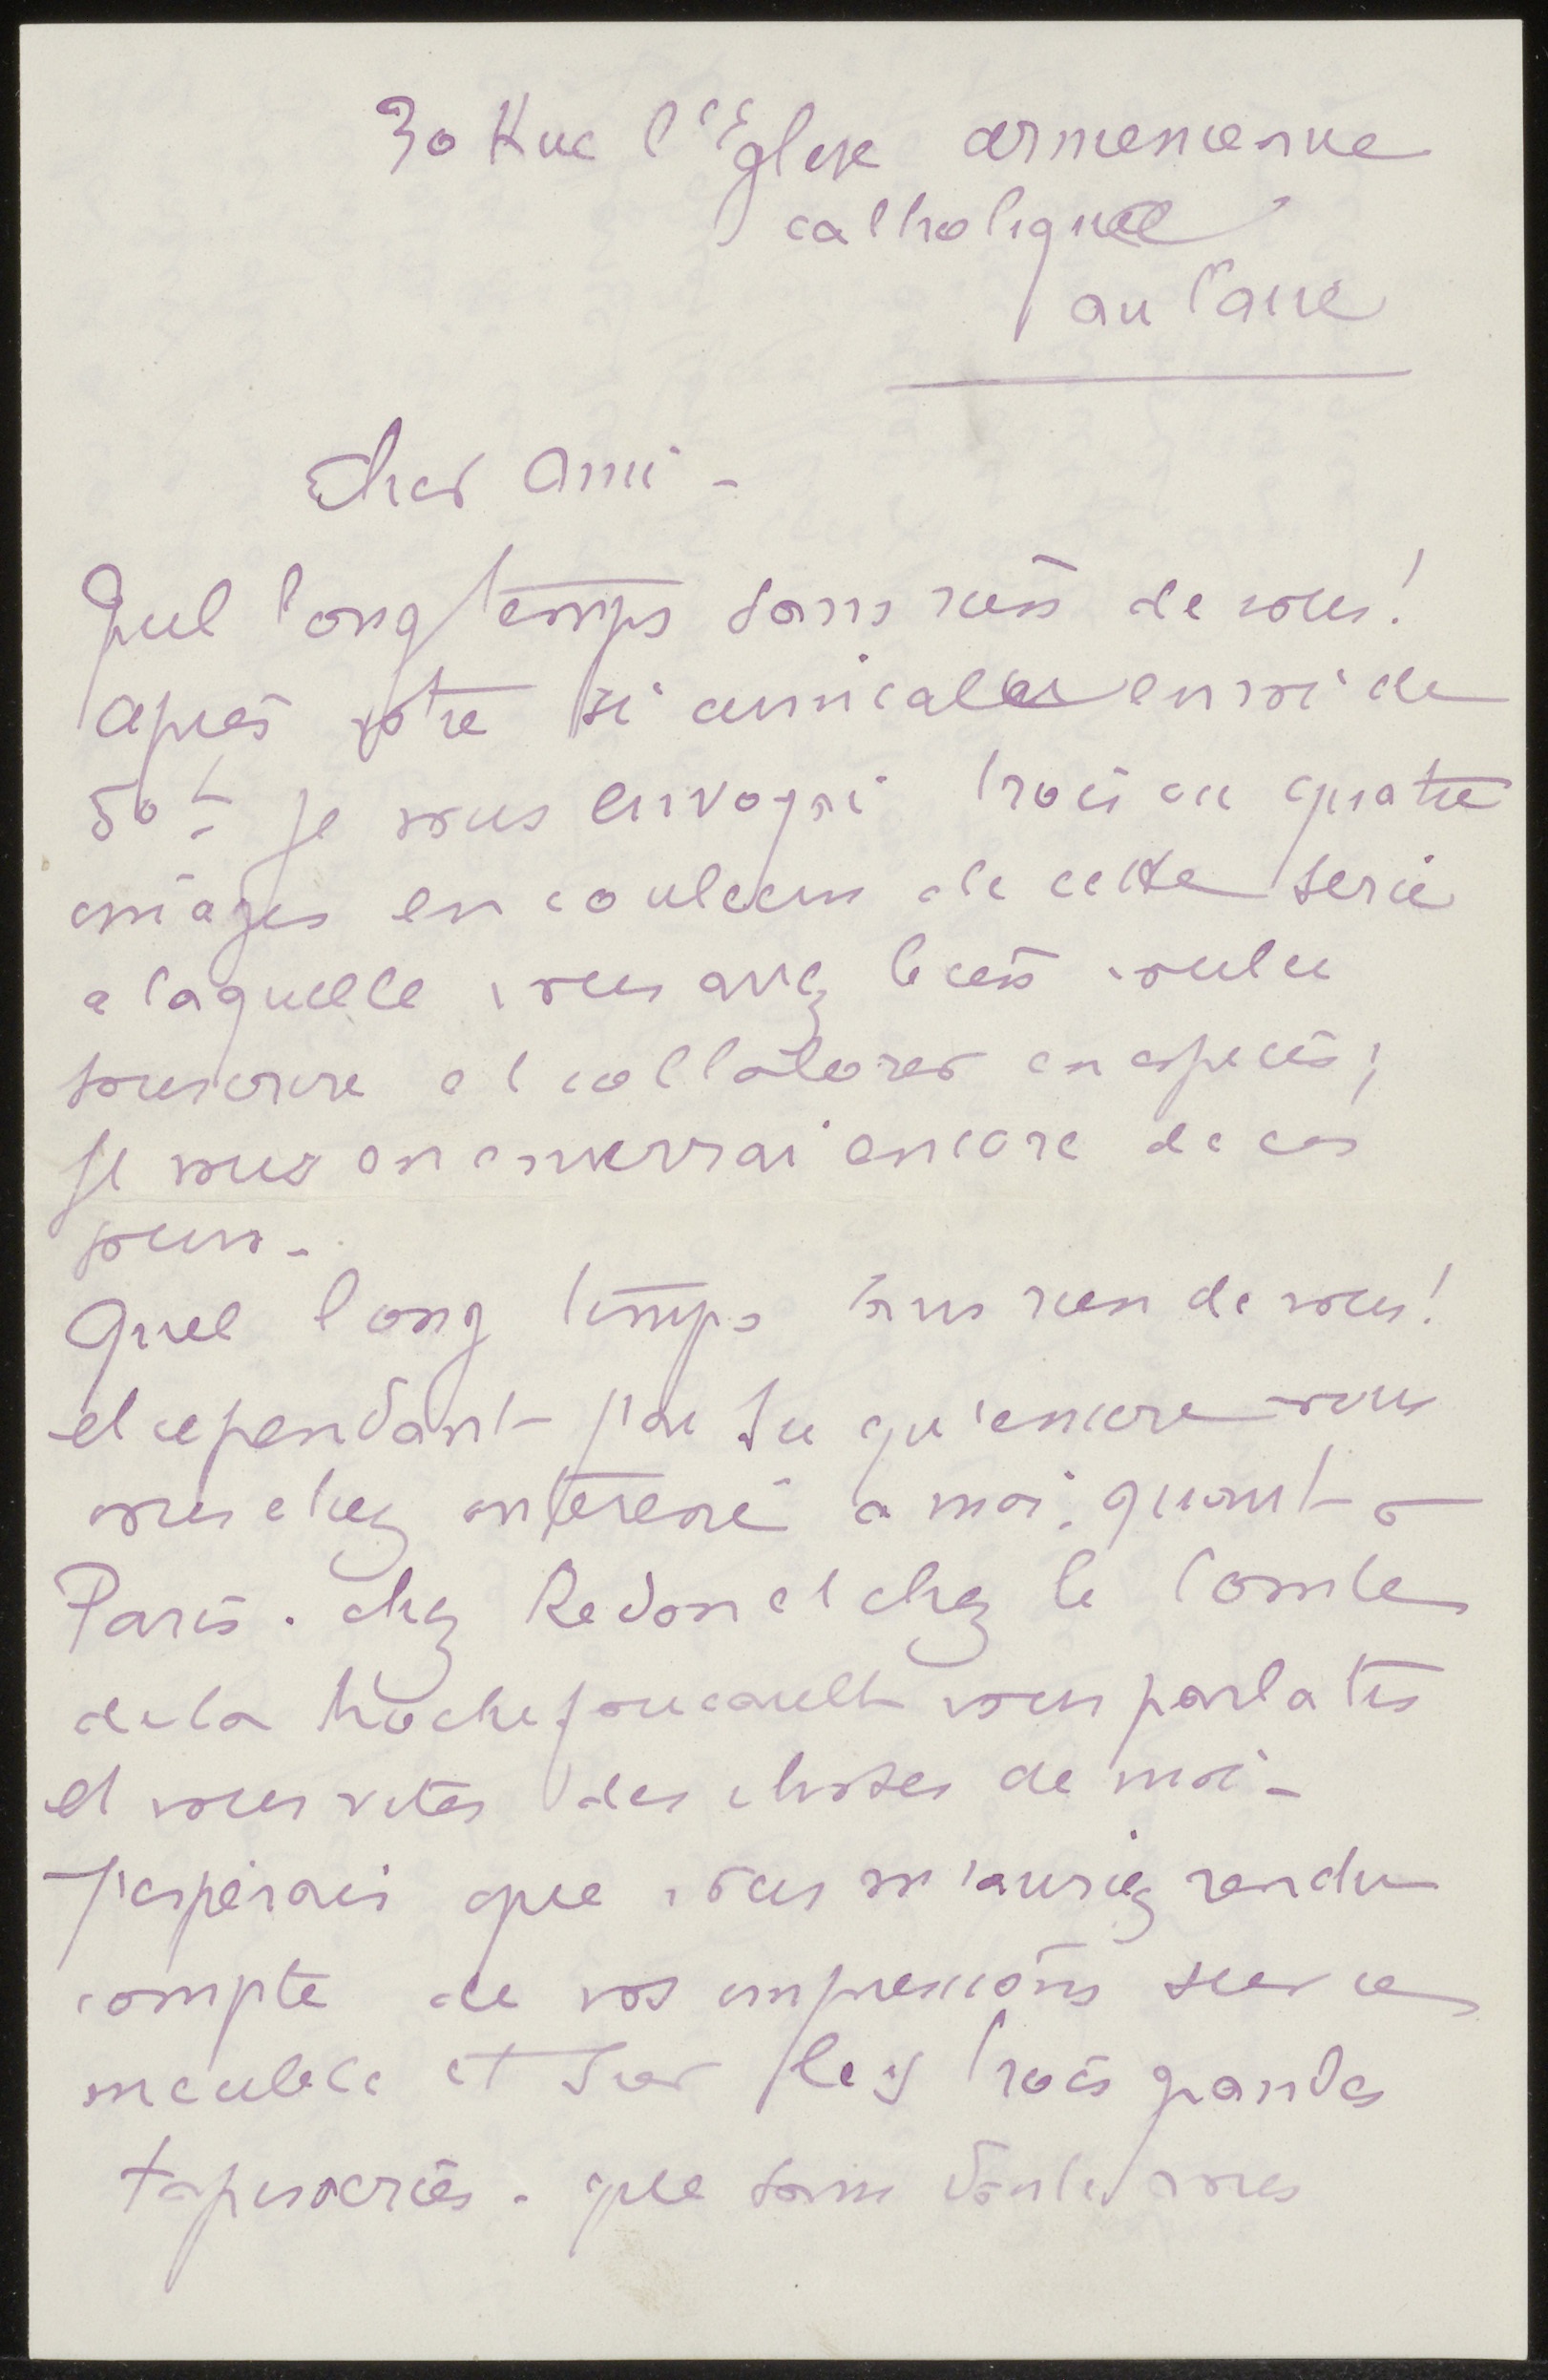 30 Rue l'Eglise armenienne
catholique
au Caire
Cher Ami -
Quel long temps sans rien de vous!
apres votre si amicale envoi de
50 f je vous envoyai trois ou quatre
images en couleurs de cette serie
a laquelle vous avez bien voulu
souscrire et collaborer en especes;
je vous en enverrai encore de ces
jours -
Quel long temps sans rien de vous!
et cependant j'ai su qu'encore vous
vous etiez interessé a moi, quant a
Paris. chez Redon et chez le Comte
de la Rochefoucault vous parlates
et vous vites des choses de moi -
J'esperais que vous m'auriez rendu
compte de vos impressions sur ces
meubles et sur les trois grandes
tapisseries - que sans doute vous